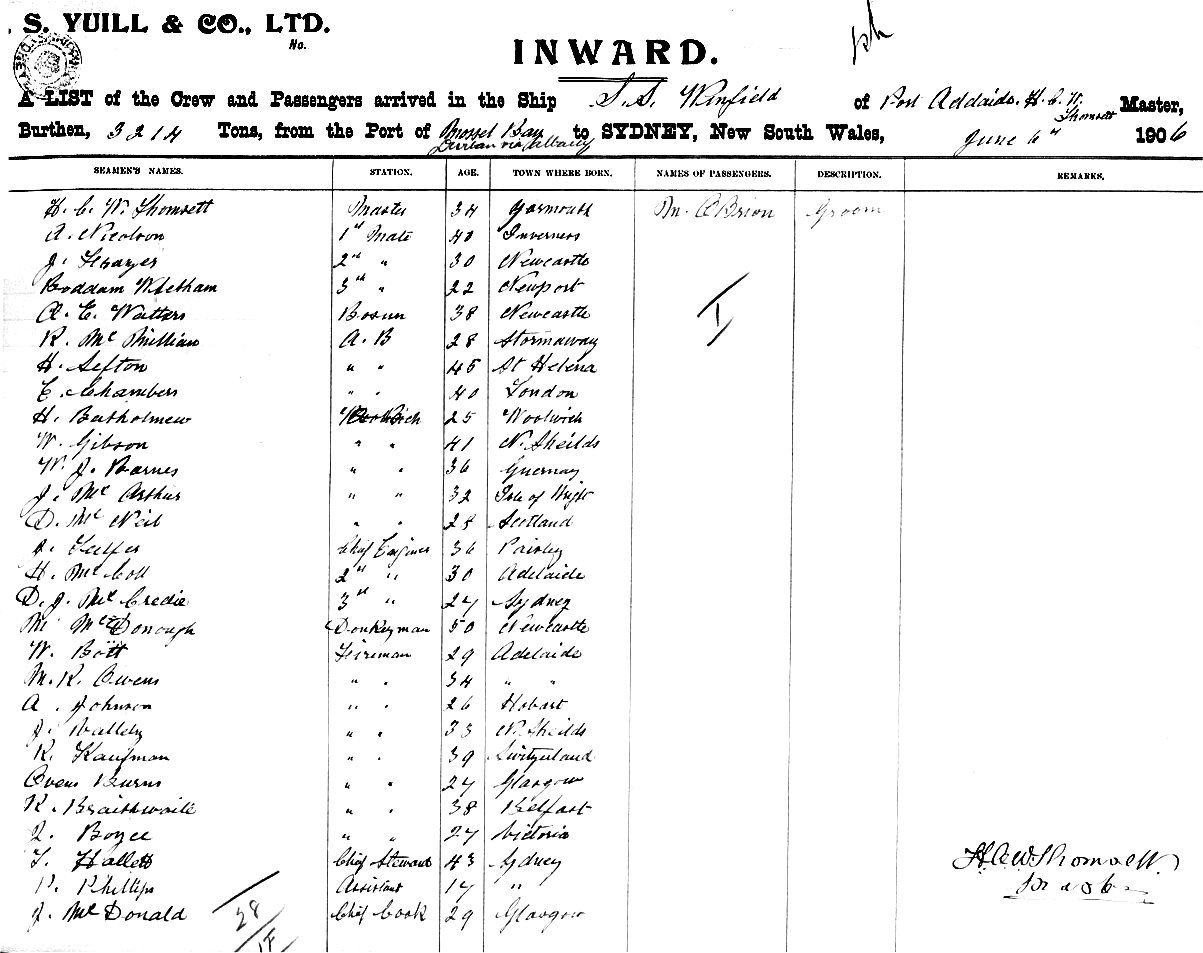 S. YUILL & CO., LTD.
No.
INWARD.
A LIST of the Crew and Passengers arrived in the Ship S.S. Winfield of Port Addaide. H. C. W. Thomsett Master,
Burthen, 3214 Tons, from the Port of Mossel Bay Durban via Albany to SYDNEY, New South Wales, June 6th 1906
SEAMEN'S NAMES. STATION. AGE. TOWN WHERE BORN. NAMES OF PASSENGERS. DESCRIPTION. REMARKS.
H. C. W. Thomsett Master 34 Yarmouth M. O'Brion Groom
A. Nicolson 1st Mate 43 Inverness
J. 2nd " 30 Newcastle
Boddam Whetham 3rd " 22 Newport
A. E. Watters Bosun 38 Newcastle
R. Mc Millian A. B 28 Stornaway
H. Sefton " " 45 St Helena
E. Chambers " " 40 London
H. Bartholmew 25 Woolwich
W. Gibson " " 41 N. Sheilds
W. J. Barnes " " 36 Guernsay
J. Mc Arthur " " 32 Isle of Wright
D. Mc Neil " " 28 Scotland
J. Telfer Chief Engineer 36 Paisley
H. Mc Coll 2nd " 30 Adelaide
D. J. Mc Credie 3rd " 27 Sydney
M. McDonough Donkeyman 50 Newcastle
W. Bott Fireman 29 Adelaide
M. R. Owens " " 34 " "
A. Johnson " " 26 Hobart
J. " " 33 N. Sheilds
R. Kaufman " " 39 Switzerland
Owens Burns " " 27 Glasgow
R. Braithwaite " " 38 Belfast
Boyce " " 27 Victoria
T. Hallett Chief Steward 43 Sydney
P. Phillips Assistant 17 "
J. Mc Donald Chief Cook 29 Glasgow
H.C.W. Thomsett.
Master
28